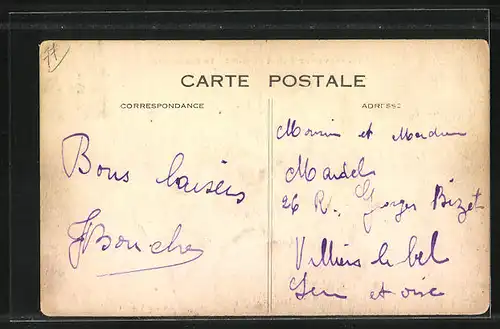 77
CARTE POSTALE
CORRESPONDANCE
ADRESSE
Bons baisers
Monsieur et Madame
26 R. Georges Bizet
Villiers le bel
et oise